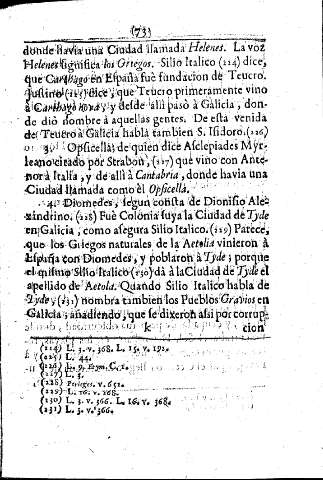 (73)
donde havia una Ciudad llamada Helenes. La voz
Helenes significa los Griegos. Silio Italico (224) dice,
que Carthago en España fuè fundacion de Teucro.
Justino (225) dice, que Teucro primeramente vino
à Carthago nova, y desde alli pasò à Galicia, don-
de diò nombre à aquellas gentes. De esta venida
de Teucro à Galicia habla tambien S. Isidoro. (226)
3. Opsicella, de quien dice Asclepiades Myr-
leano citado por Strabon, (227) que vino con Ante-
nor à Italia, y de alli à Cantabria, donde havia una
Ciudad llamada como èl Opsicella.
4. Diomedes, segun consta de Dionisio Ale-
xandrino. (228) Fuè Colonia suya la Ciudad de Tyde
en Galicia, como asegura Silio Italico. (229) Parece,
que los Griegos naturales de la Aetolia vinieron à
España con Diomedes, y poblaron à Tyde; porque
el mismo Silio Italico (230) dà à la Ciudad de Tyde el
apellido de Aetola. Quando Silio Italico habla de
Tyde, (231) nombra tambien los Pueblos Gravios en
Galicia, añadiendo, que se dixeron asi por corrup-
k cion
(224) L. 3. v. 368. L. 15. v. 192.
(225) L. 44.
(226) L. 9. Etym. C. 2.
(227) L. 3.
(228) Perieges. v. 652.
(229) L. 16. v. 368.
(230) L. 3. v. 366. L. 16. v. 368.
(231) L. 3. v. 366.